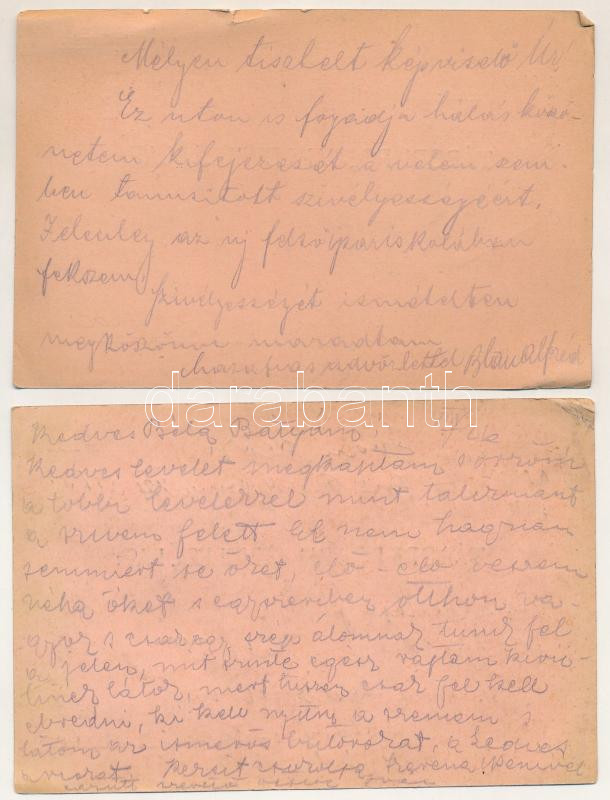 Mélyen tisztelt Képviselő Úr!
Ez uton is fogadja hálás köszö-
netem kifejezését a velem szem-
ben tanusitott szivélyességéért.
Jelenleg az uj felsőipariskolában
fekszem.
Szivélyességét ismételten
megköszönve maradtam
hazafias üdvözlettel Blau Alfréd
darabanth
Kedves Béla Bátyám,
Kedves levelét megkaptam s őrzöm
a többi levelekkel mint talizmánt
a szivem felett El nem hagynám
semmiért se őket, elő-elő veszem
néha őket s egyszeriben otthon va-
gyok s csak egy szép álomnak tünik fel
a jelen, mit szinte egész rajtam kivü-
linek látok, mert hiszen csak fel kell
ébredni, ki kell nyitni a szemem s
látom az ismerős butorokat, a kedves
arcokat. Kezeit csókolja